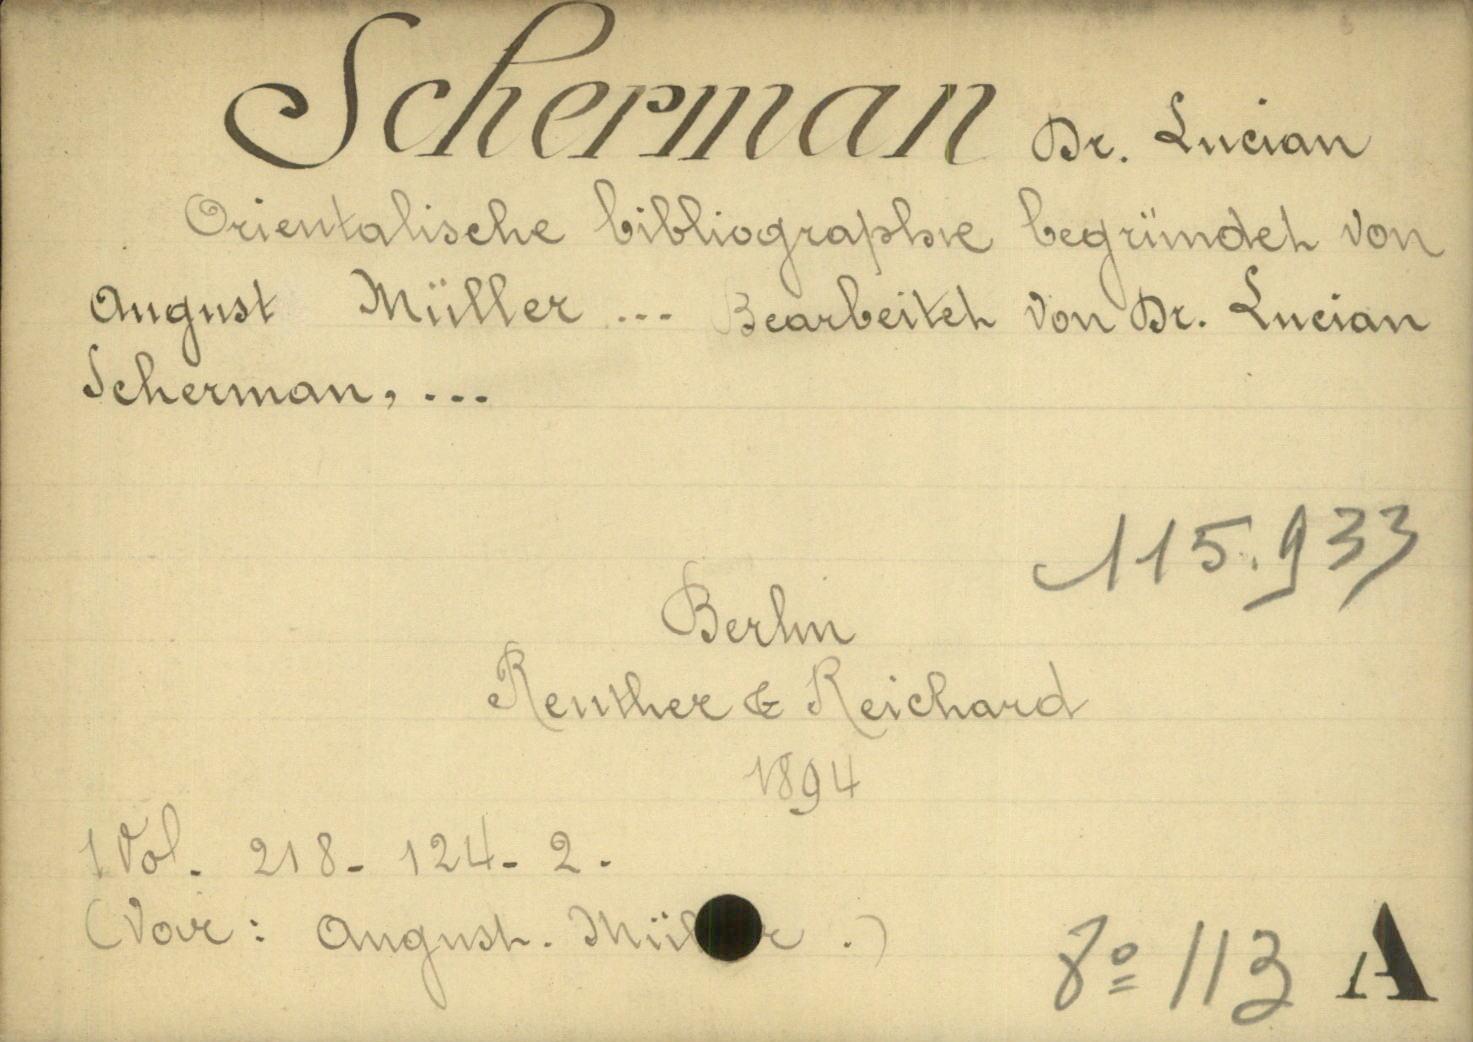 Scherman Dr. Lucian
Orientalische bibliographie begründet von
August Müller ... Bearbeitet von Dr. Lucian
Scherman, ...
115.933
Berlin
Reuther & Reichard
1894
1 Vol. 218 - 124 - 2.
(Voir: August. Müller.)
8º 113 A